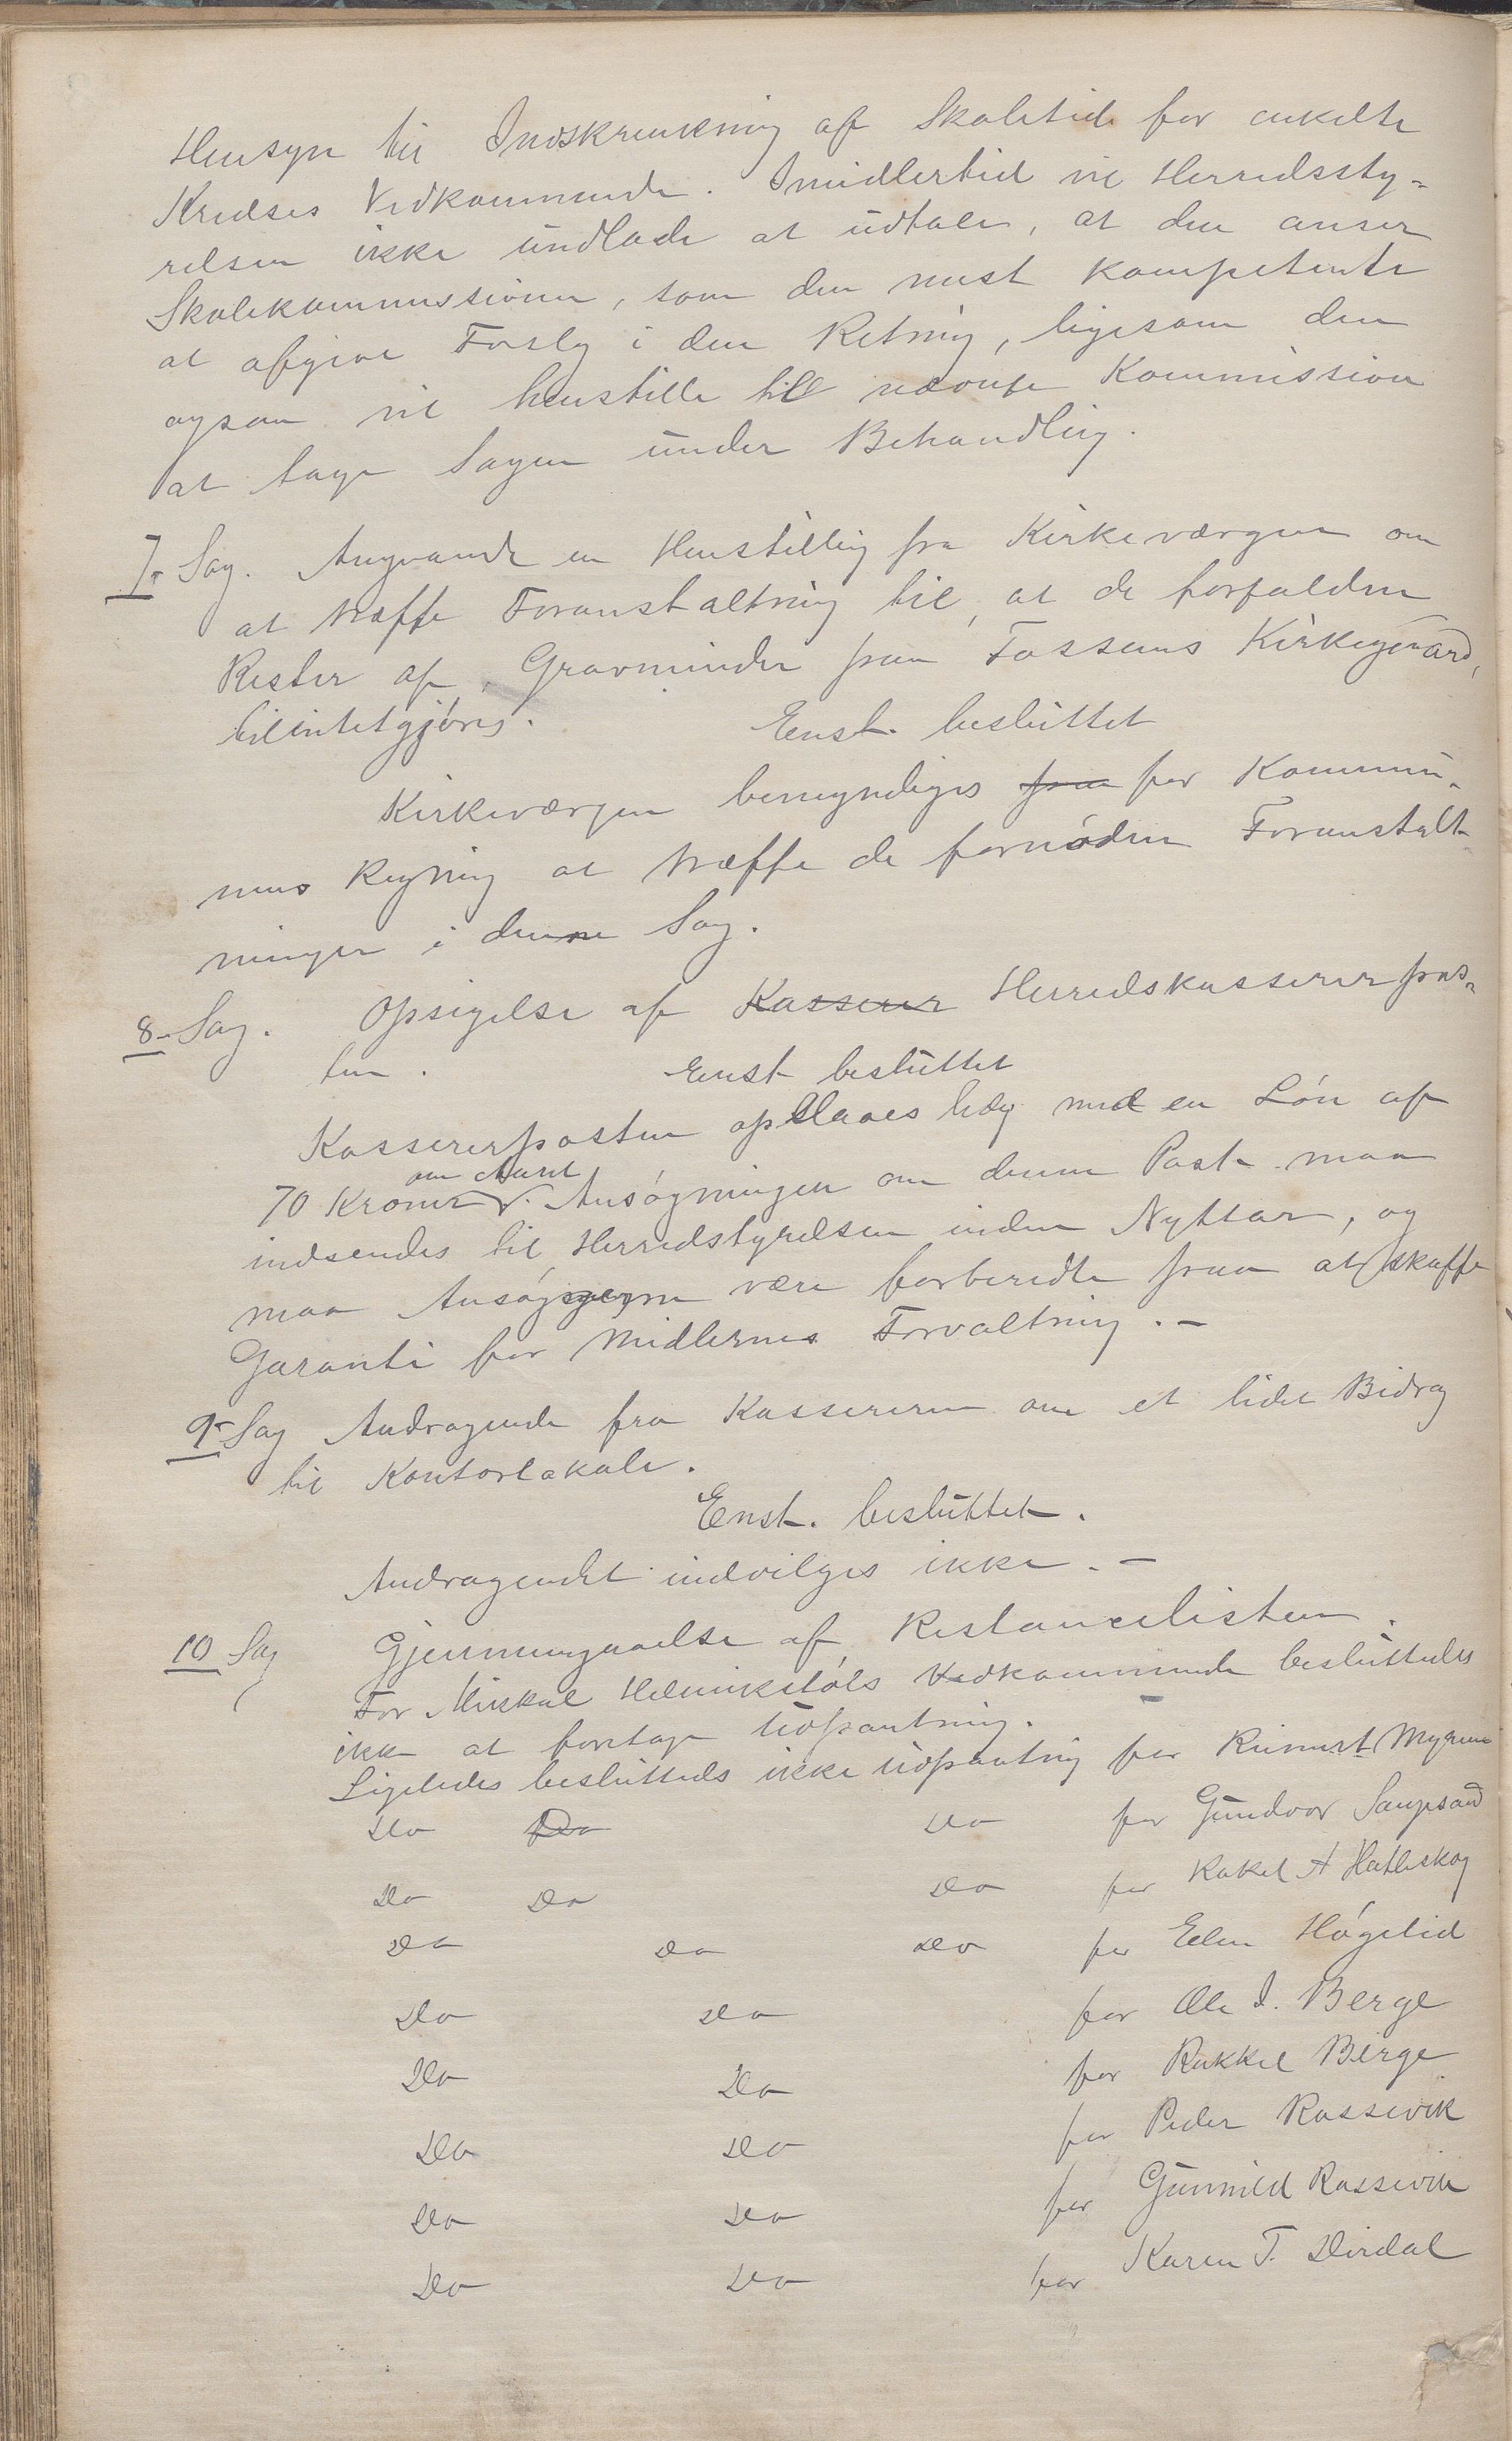 Hensyn til Indskrenkning af Skoletid for enkelte
Kredses Vedkommende. Imidlertid vil Herredssty-
relsen ikke undlade at udtale, at den anser
Skolekommissionen, som den mest kompetente
at afgive Forslg i den Retning, ligesom den
ogsaa vil henstille till nævnte Kommission
at tage Sagen under Behandling.
7- Sag. Angaaende en Henstilling fra Kirkeværgen om
at træffe Foranstaltning til, at de forfaldne
Rester af Gravminder paa Fossans Kirkegaard,
tilintetgjøres.
Enst. besluttet
Kirkeværgen bemyndiges paa for Kommu-
nens Regning at træffe de fornødne Foranstalt-
ninger i denne Sag.
8- Sag. Opsigelse af Kasserer Herredskassererpos-
ten.
Enst besluttet
Kassererposten opslaaes ledig med en Løn af
om Aaret
70 Kroner. Ansøgningen om denne Post maa
indsendes til Herredstyrelsen inden Nyttaar, og
maa Ansøgerne være forberedte paa at skaffe
Garanti for Midlernes Forvaltning. -
9- Sag Andragende fra Kassereren om et lidet Bidrag
til Kontorlokale.
Enst. besluttet.
Andragendet indvilges ikke. -
10 Sag Gjennemgaaelse af Restancelisten.
For Mikkal Helmikstøls Vedkommende besluttedes
ikke at foretage Udpantning.
Ligeledes besluttedes ikke udpantnig for Rimert Myrene
Do Do Do for Gundvor Sangesand
Do Do Do for Rakel A Hatleskog
Do Do Do for Elen Høgelid
Do Do for Ole I. Berge
Do Do for Rakkel Berge
Do Do for Peder Rossevik
Do Do for Gunnild Rossevik
Do Do for Karen T. Dirdal